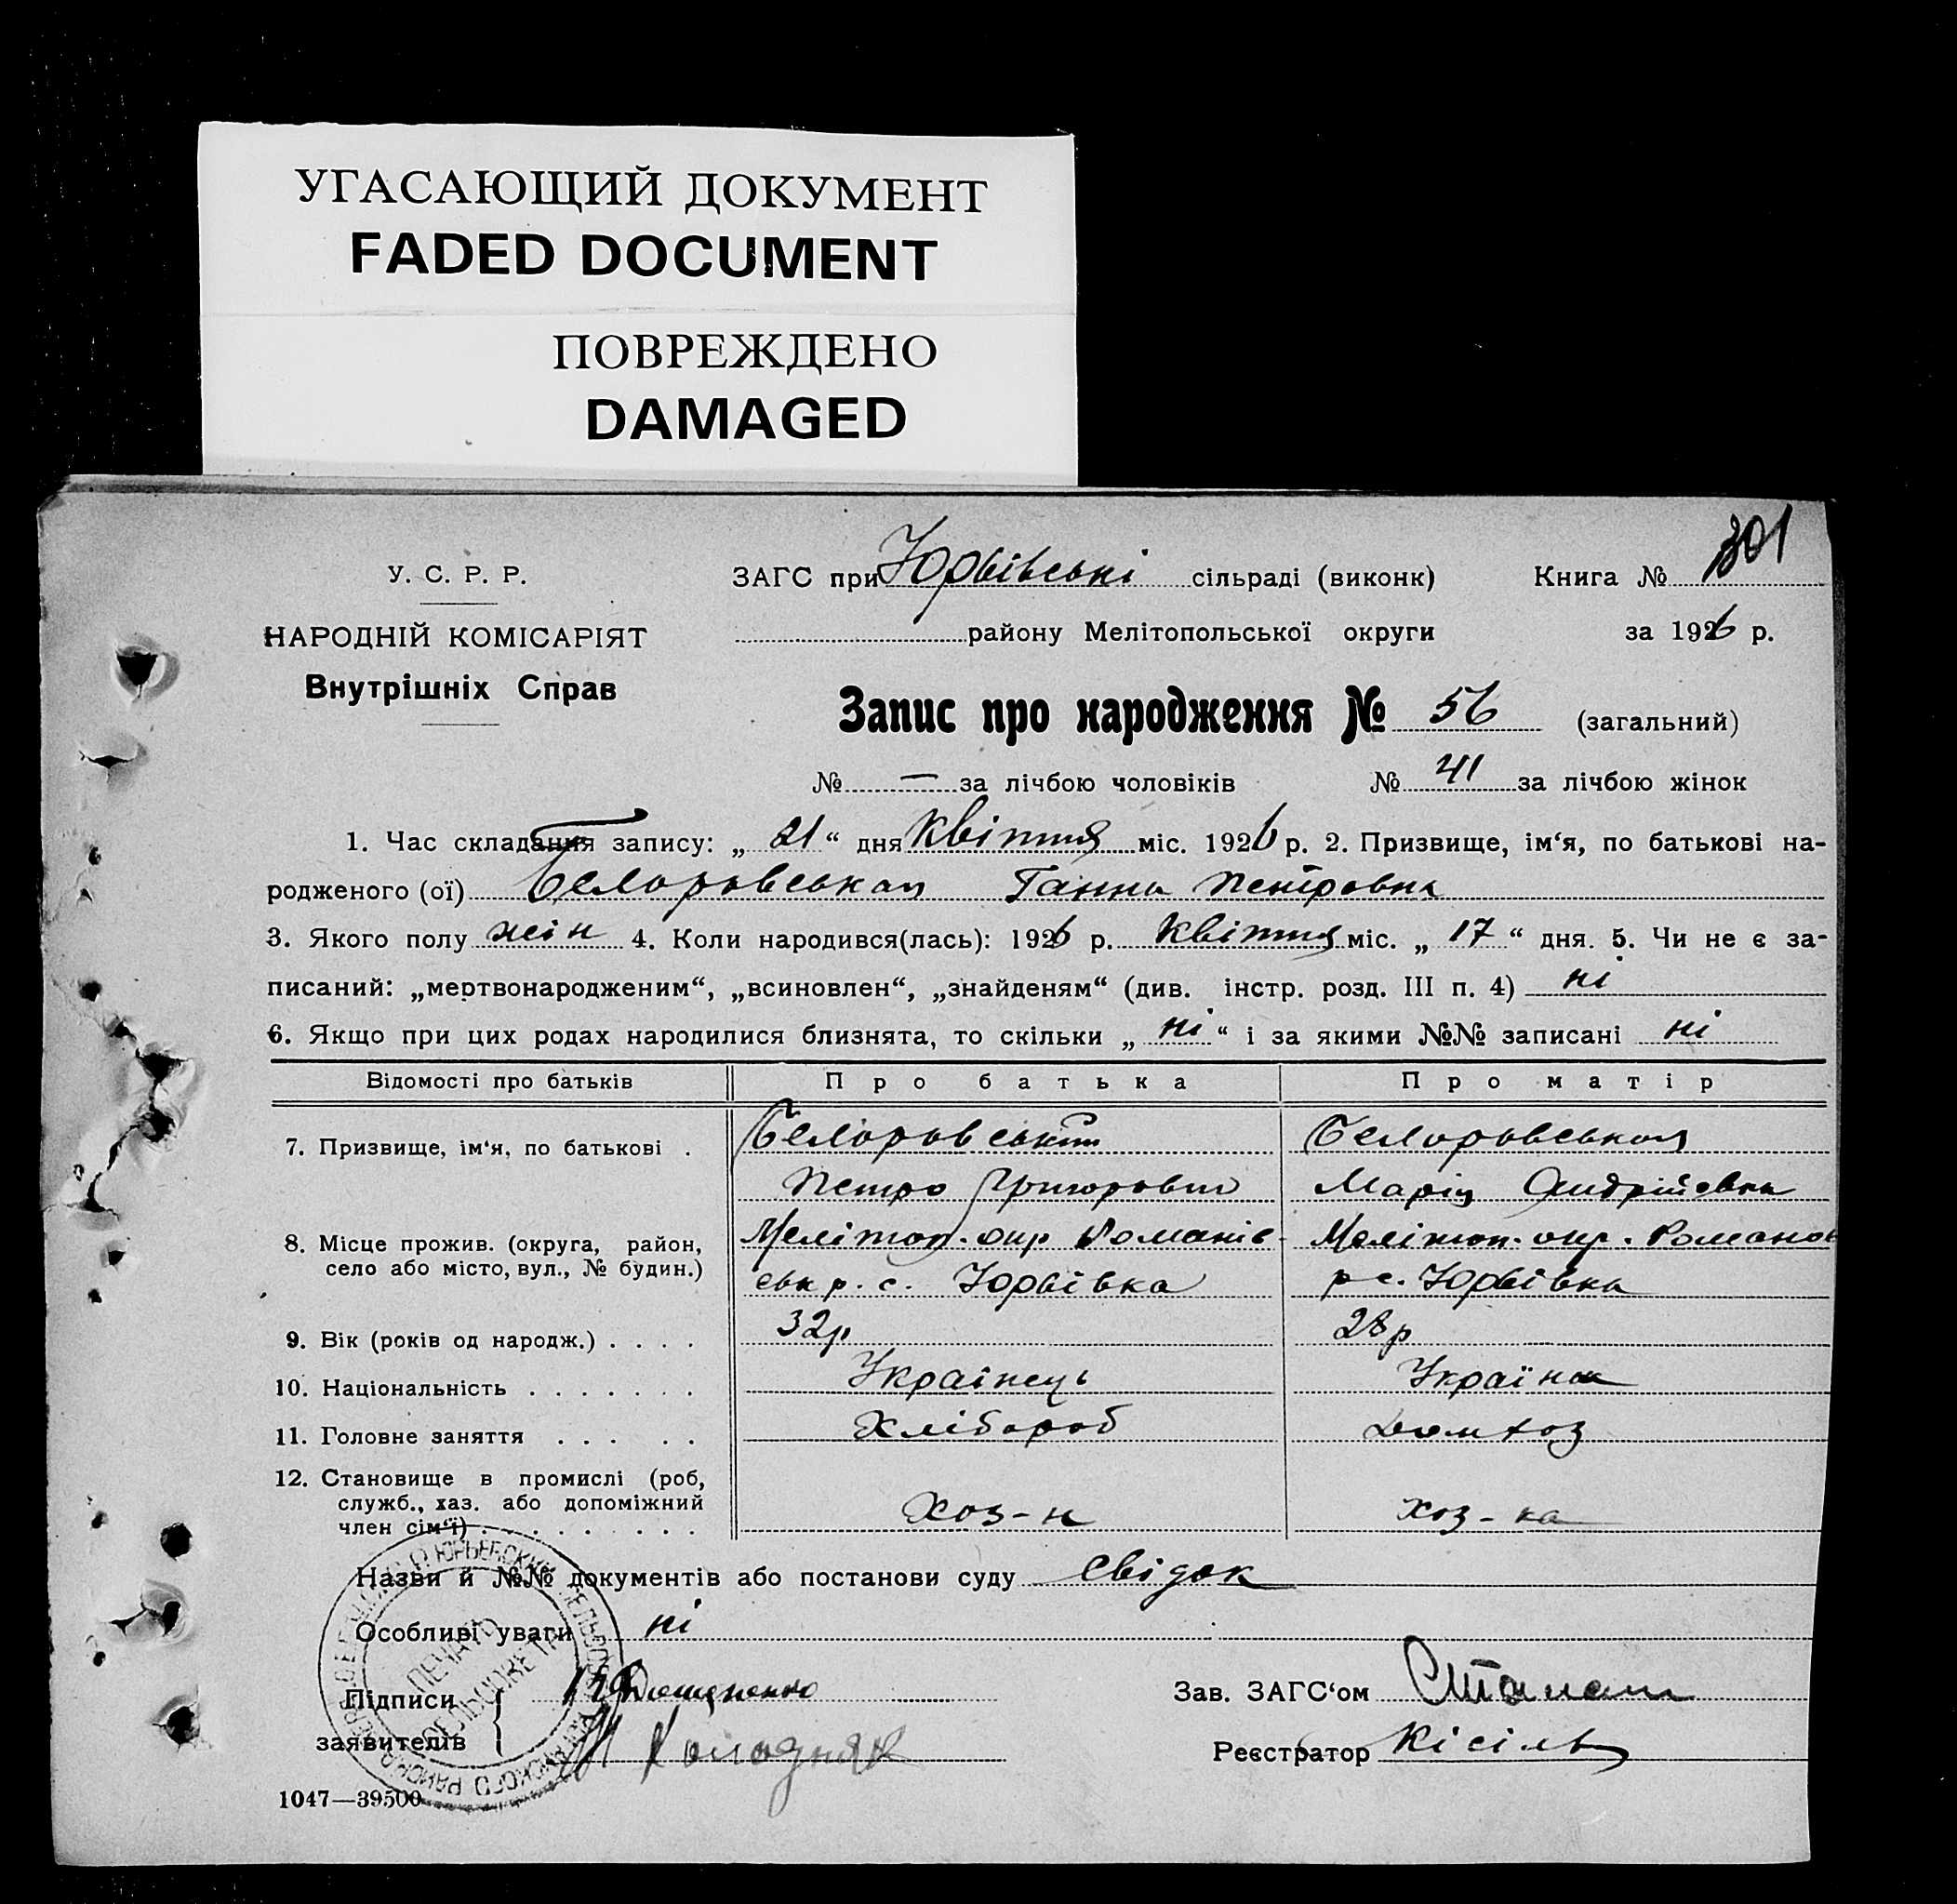 УГАСАЮЩИЙ ДОКУМЕНТ
FADED DOCUMENT
ПОВРЕЖДЕНО
DAMAGED
У. С. Р. Р.
НАРОДНІЙ КОМІСАРІЯТ
Внутрішніх Справ
ЗАГС при Юрьївські сільраді (виконк) Книга № 301
району Мелітопольської округи за 1926 р.
Запис про народження № 56 (загальний)
№ — за лічбою чоловіків № 41 за лічбою жінок
1. Час складання запису: „ 21 “ дня Квітня міс. 1926 р. 2. Призвище, ім‘я, по батькові на-
родженого (ої) Ганна Петровна
3. Якого полу жін 4. Коли народився(лась): 1926 р. Квітня міс. „ 17 “ дня. 5. Чи не є за-
писаний: „мертвонародженим“, „всиновлен“, „знайденям“ (див. інстр. розд. III п. 4) ні
6. Якщо при цих родах народилися близнята, то скільки „ ні “ і за якими №№ записані ні
Відомості про батьків Про батька Про матір
7. Призвище, ім‘я, по батькові .
Петро Григорович Марія Андрійовна
8. Місце прожив. (округа, район, Мелітоп. окр Романів- Мелітоп. окр. Романов
село або місто, вул., № будин.) ськ р. с. Юрьївка р с. Юрьївка
9. Вік (років од народж.) . . . . 32 р 28 р
10. Національність . . . . . . . Українець Українка
11. Головне заняття . . . . . Хлібороб домхоз
12. Становище в промислі (роб,
служб., хаз. або допоміжний
член сім‘ї) . . . . . . . . . Хоз-н хоз-ка
Назви й №№ документів або постанови суду Свідок
Особливі уваги ні
Підписи
заявителів
Зав. ЗАГС‘ом
Реєстратор Кісіль
1047—39500
ПЕЧАТЬ
СЕЛЬСОВЕТА